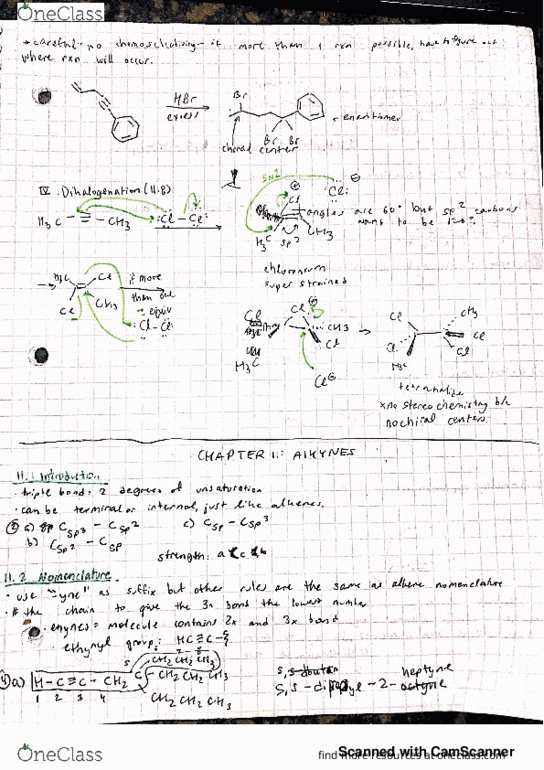 OneClass
→ careful - no chemoselectivity - if more than 1 rxn possible, have to figure out
where rxn will occur.
HBr
excess
Br
Br Br
+ enantiomer
chiral center
IV. Dihalogenation (11.8)
H₃C CH₃ Cl — Cl
SN2
Cl ⊕
Cl: ⊖
angles are 60° but sp² carbons
want to be 120°
H₃C sp² CH₃
chloronium
super strained
H₃C Cl
Cl CH₃
if more
than one
equiv
Cl - Cl
Cl Cl ⊕
CH₃
Cl
H₃C
Cl⊖
Cl CH₃
Cl Cl
H₃C Cl
tetrahalide
no stereochemistry b/c
no chiral centers.
CHAPTER 11: ALKYNES
11.1 Introduction
· triple bond: 2 degrees of unsaturation
· can be terminal or internal, just like alkenes.
a) Csp³ - Csp² c) Csp - Csp³
b) Csp² - Csp
strength: a < c < b
11.2 Nomenclature
· use "yne" as suffix but other rules are the same as alkene nomenclature
· # the chain to give the 3x bond the lowest number
· enynes = molecule contains 2x and 3x bond
· ethynyl group: HC≡C-
CH₂CH₂CH₃
a) H-C≡C-CH₂ C-CH₂CH₂CH₃
1 2 3 4
CH₂CH₂CH₃
heptyne
OneClass
find more resources at oneclass.com
Scanned with CamScanner